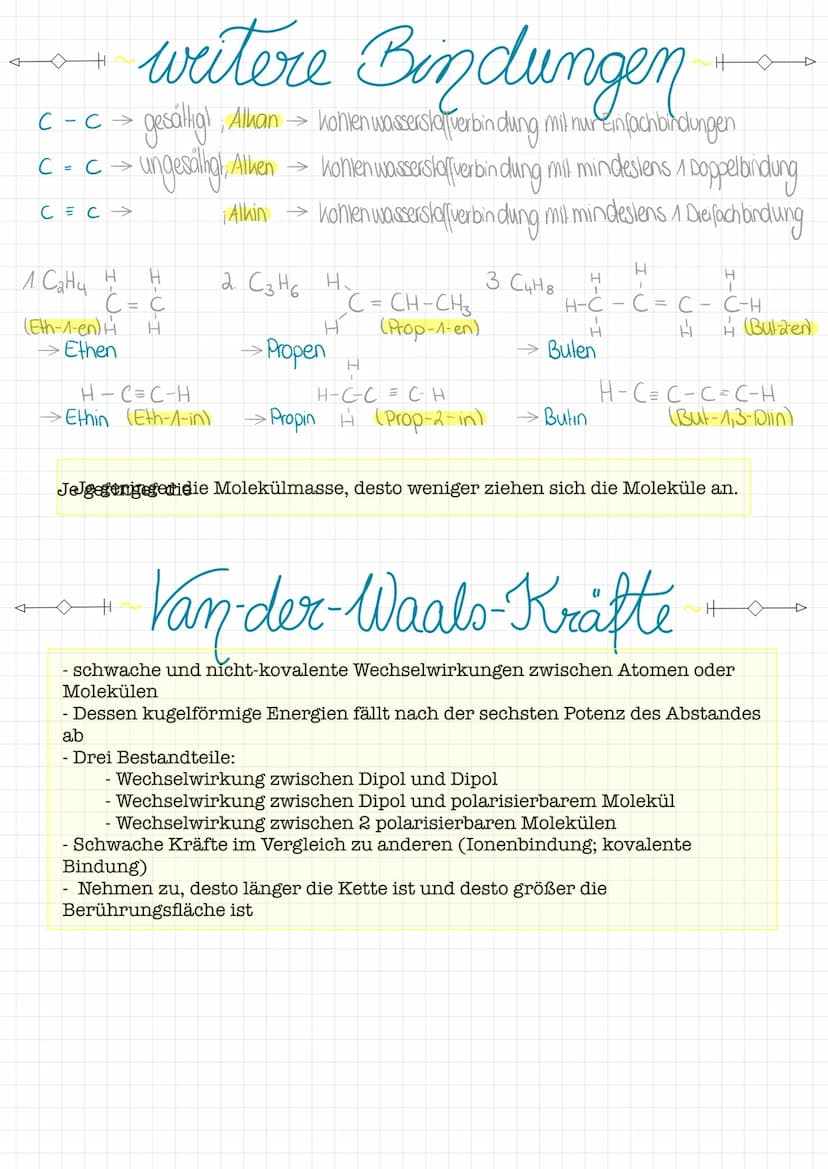 weitere Bindungen
C - C → gesättigt, Alkan → Kohlenwasserstoffverbindung mit nur Einfachbindungen
C = C → ungesättigt, Alken → Kohlenwasserstoffverbindung mit mindestens 1 Doppelbindung
C ≡ C → , Alkin → Kohlenwasserstoffverbindung mit mindestens 1 Dreifachbindung
1. C₂H₄ H H 2. C₃H₆ H 3 C₄H₈ H H H
C = C C = CH-CH₃ H-C - C = C - C-H
(Eth-1-en) H H H (Prop-1-en) H H H (But-2-en)
→ Ethen → Propen → Buten
H
H - C≡C-H H-C-C ≡ C-H H - C≡ C-C=C-H
→ Ethin (Eth-1-in) → Propin H (Prop-2-in) → Butin (But-1,3-Diin)
Je geringer die Molekülmasse, desto weniger ziehen sich die Moleküle an.
Van-der-Waals-Kräfte
- schwache und nicht-kovalente Wechselwirkungen zwischen Atomen oder
Molekülen
- Dessen kugelförmige Energien fällt nach der sechsten Potenz des Abstandes
ab
- Drei Bestandteile:
- Wechselwirkung zwischen Dipol und Dipol
- Wechselwirkung zwischen Dipol und polarisierbarem Molekül
- Wechselwirkung zwischen 2 polarisierbaren Molekülen
- Schwache Kräfte im Vergleich zu anderen (Ionenbindung; kovalente
Bindung)
- Nehmen zu, desto länger die Kette ist und desto größer die
Berührungsfläche ist